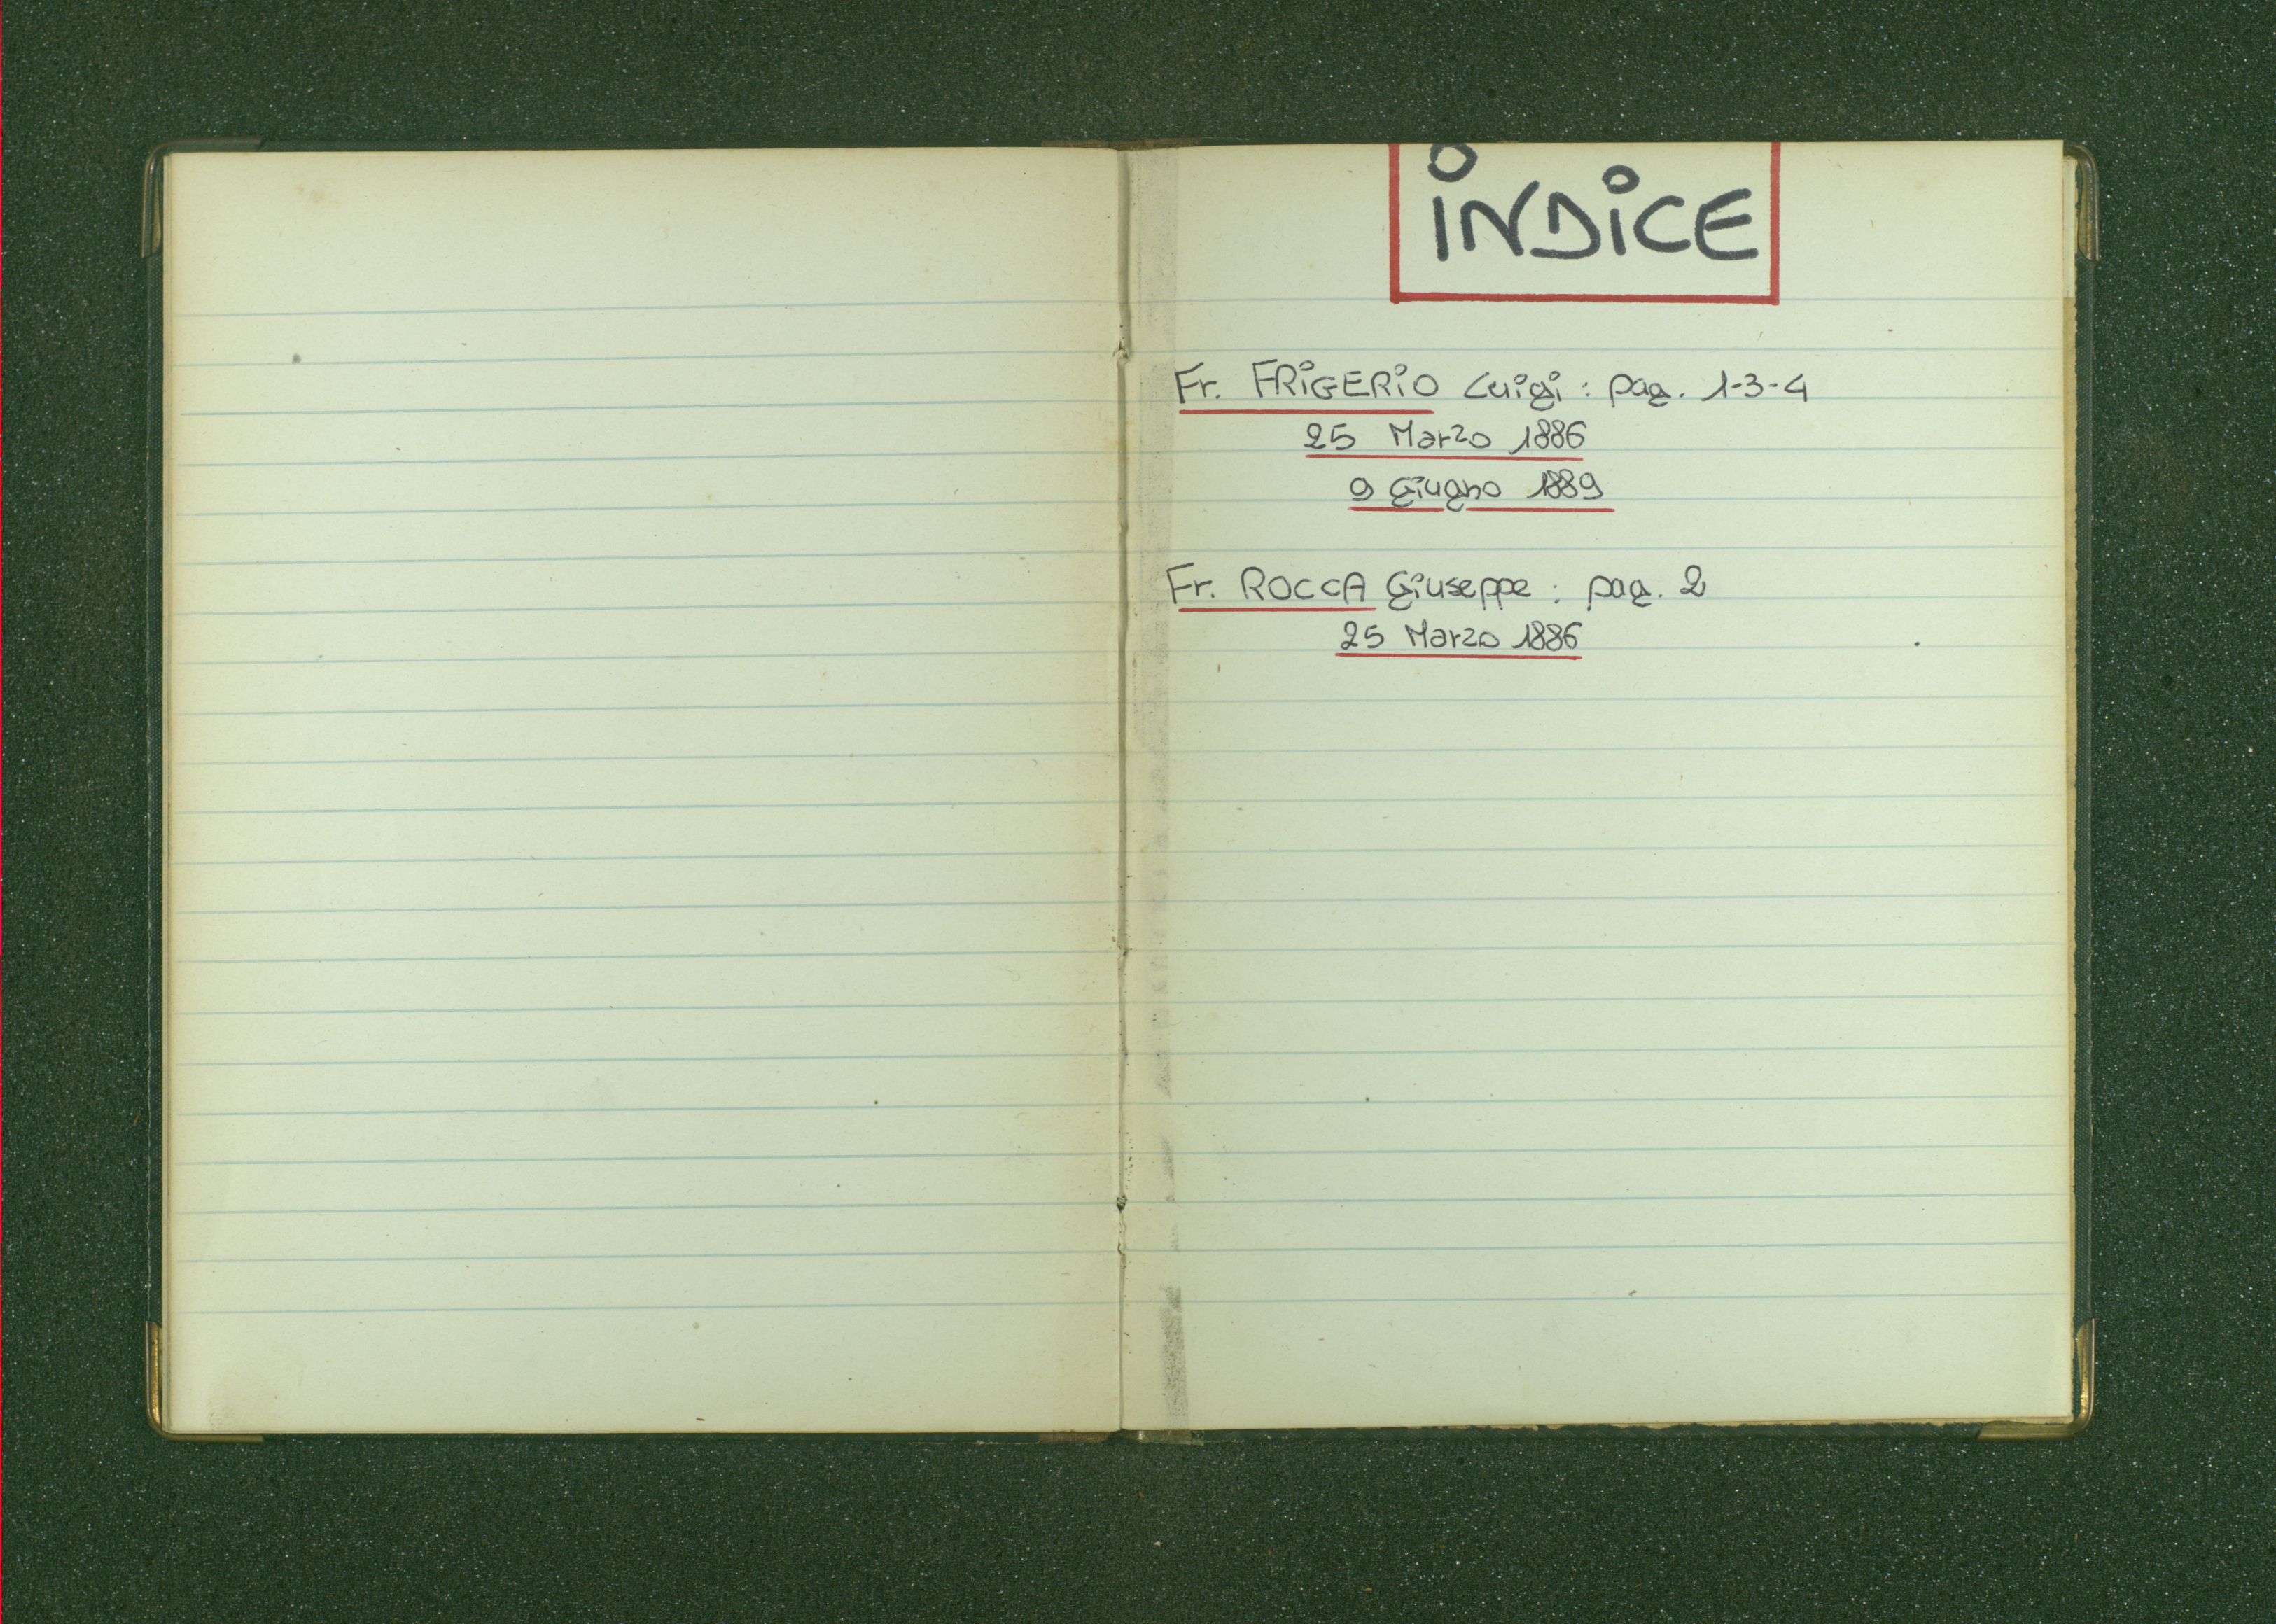 iNDiCE
Fr. FRiGERiO Luigi : pag. 1-3-4
25 Marzo 1886
9 Giugno 1889
Fr. ROCCA Giuseppe : pag. 2
25 Marzo 1886